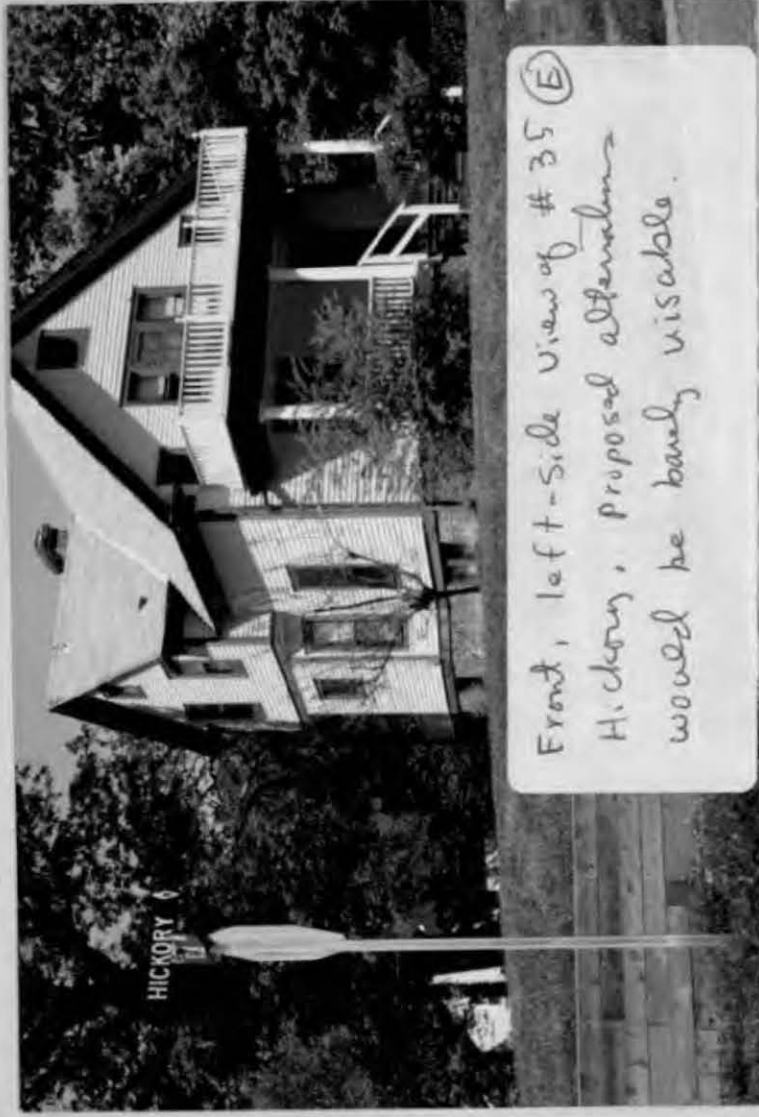 HICKORY 6
Front, left-side view of #35 E
Hickory, proposed alterations
would be barely visable.